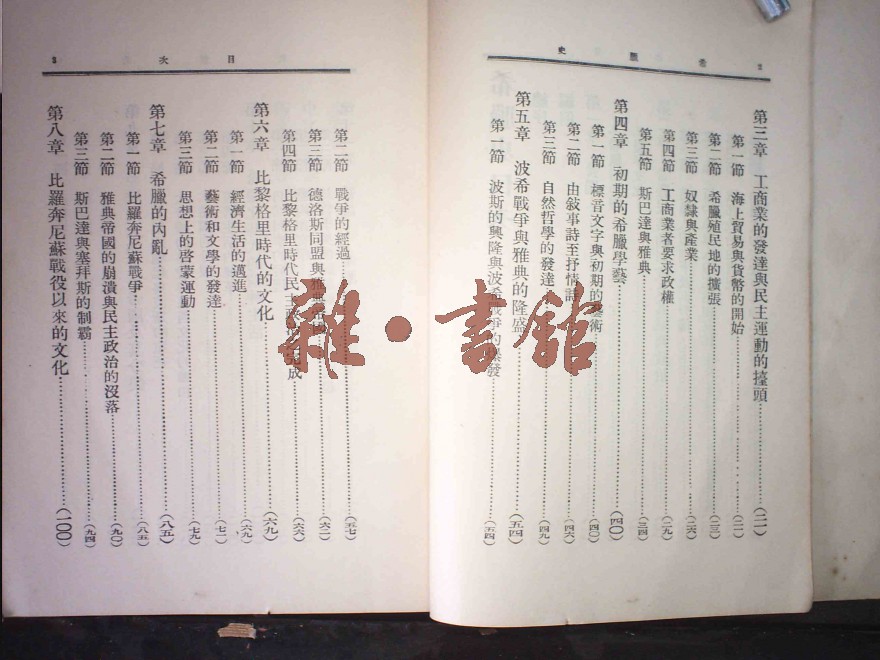 2 希臘史
第三章 工商業的發達與民主運動的擡頭……(二一)
第一節 海上貿易與貨幣的開始……(二一)
第二節 希臘殖民地的擴張……(二三)
第三節 奴隸與產業……(二六)
第四節 工商業者要求政權……(二九)
第五節 斯巴達與雅典……(三四)
第四章 初期的希臘學藝……(四〇)
第一節 標音文字與初期的藝術……(四〇)
第二節 由敍事詩至抒情詩……(四六)
第三節 自然哲學的發達……(四九)
第五章 波希戰爭與雅典的隆盛……(五四)
第一節 波斯的興隆與波希戰爭的爆發……(五四)
目次 3
第二節 戰爭的經過……(五七)
第三節 德洛斯同盟與雅典……(六二)
第四節 比黎格里時代民主政治的完成……(六六)
第六章 比黎格里時代的文化……(六九)
第一節 經濟生活的邁進……(六九)
第二節 藝術和文學的發達……(七二)
第三節 思想上的啓蒙運動……(七九)
第七章 希臘的內亂……(八五)
第一節 比羅奔尼蘇戰爭……(八五)
第二節 雅典帝國的崩潰與民主政治的沒落……(九〇)
第三節 斯巴達與塞拜斯的制霸……(九四)
第八章 比羅奔尼蘇戰役以來的文化……(一〇〇)
雜·書館